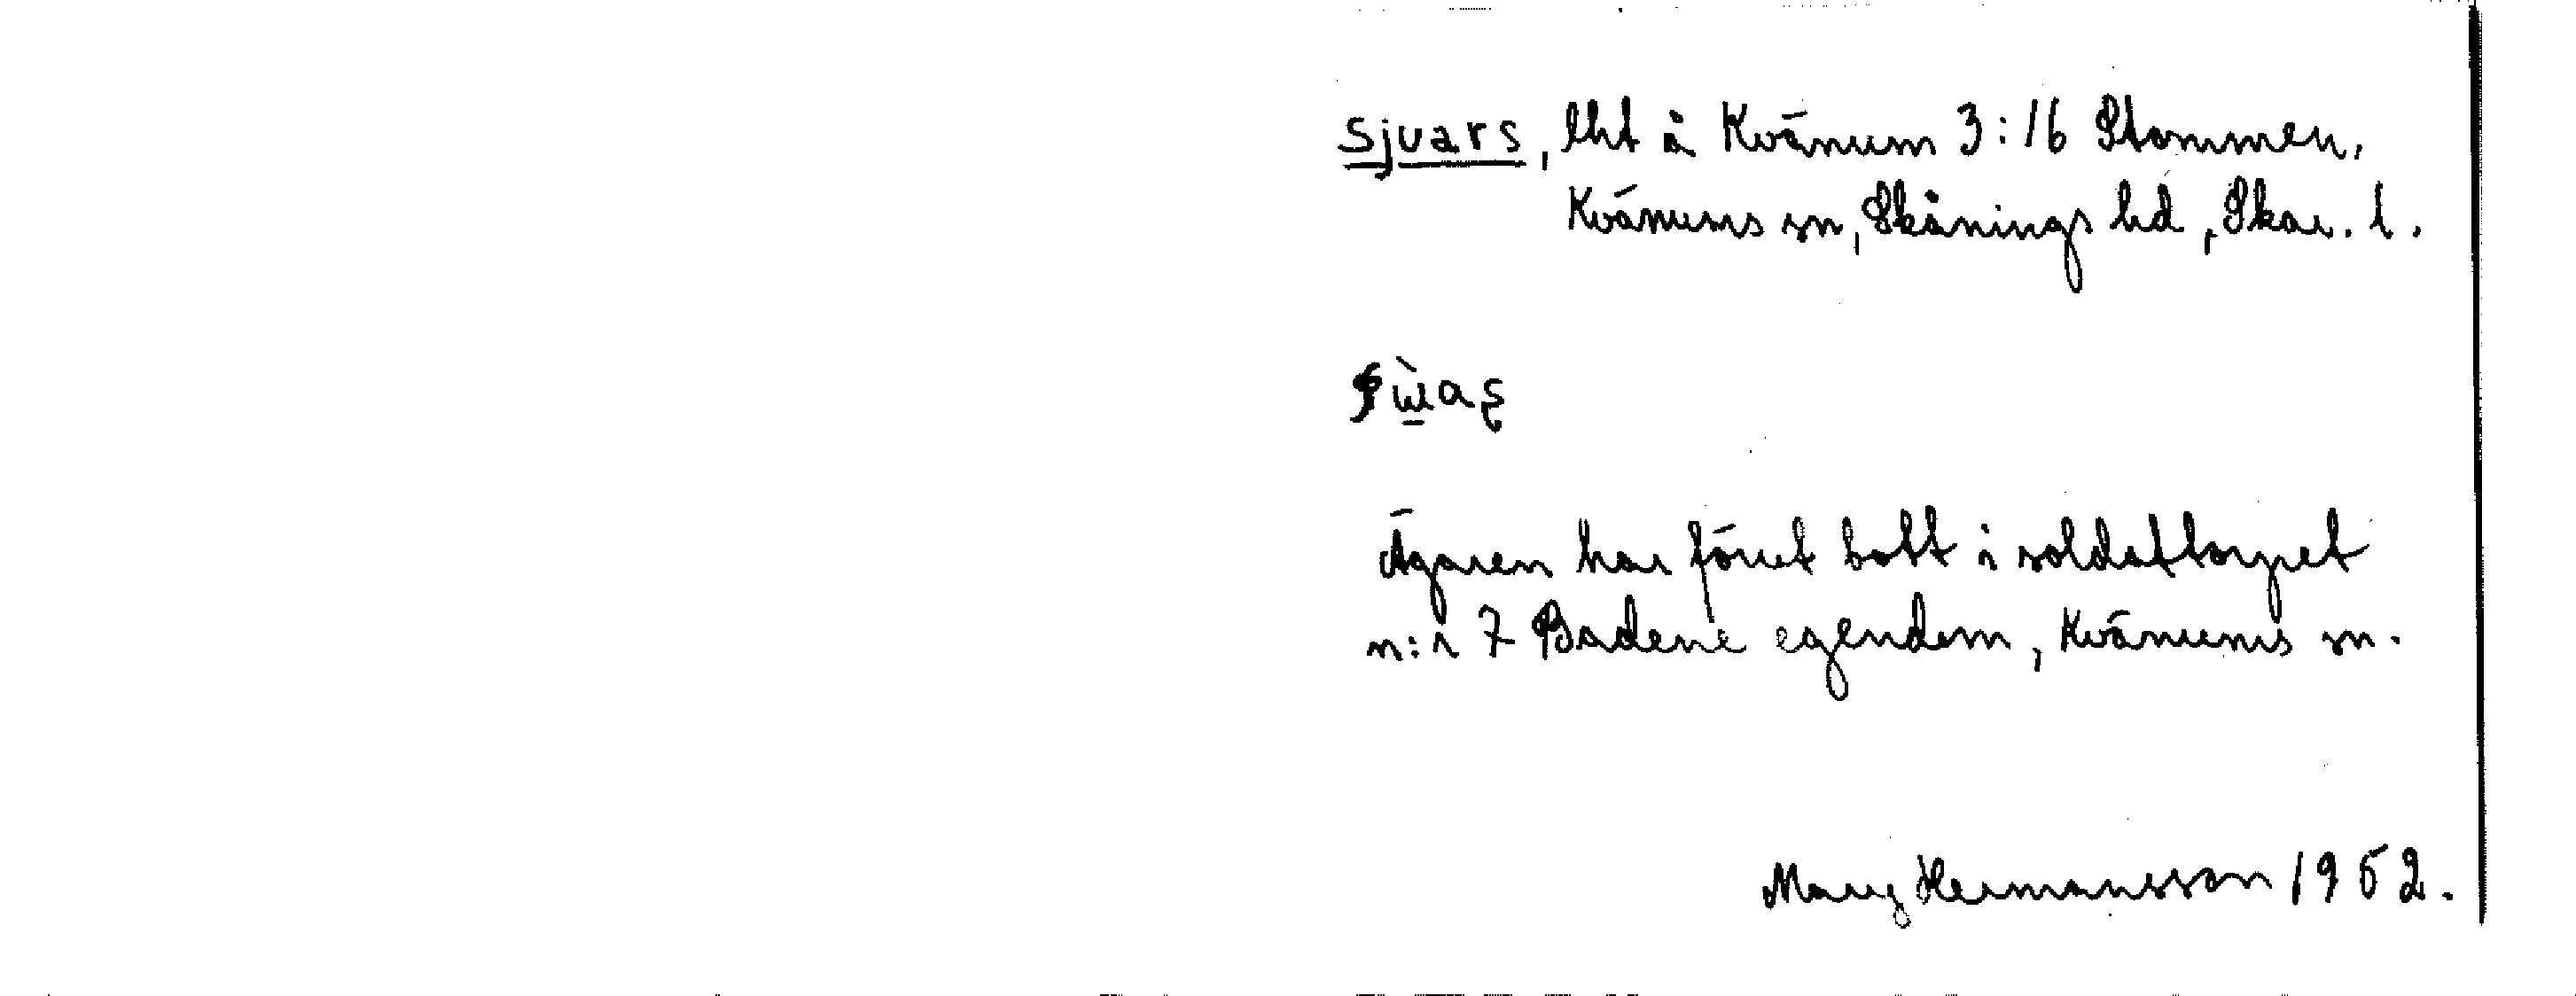 Sjuars, lht å Kvänum 3:16 Stommen,
Kvänums sn, Skånings hd, Skar. l.
Ägaren har förut bott i soldattorpet
n:r 7 Badene egendom, Kvänums sn.
Mary Hermansson 1952.